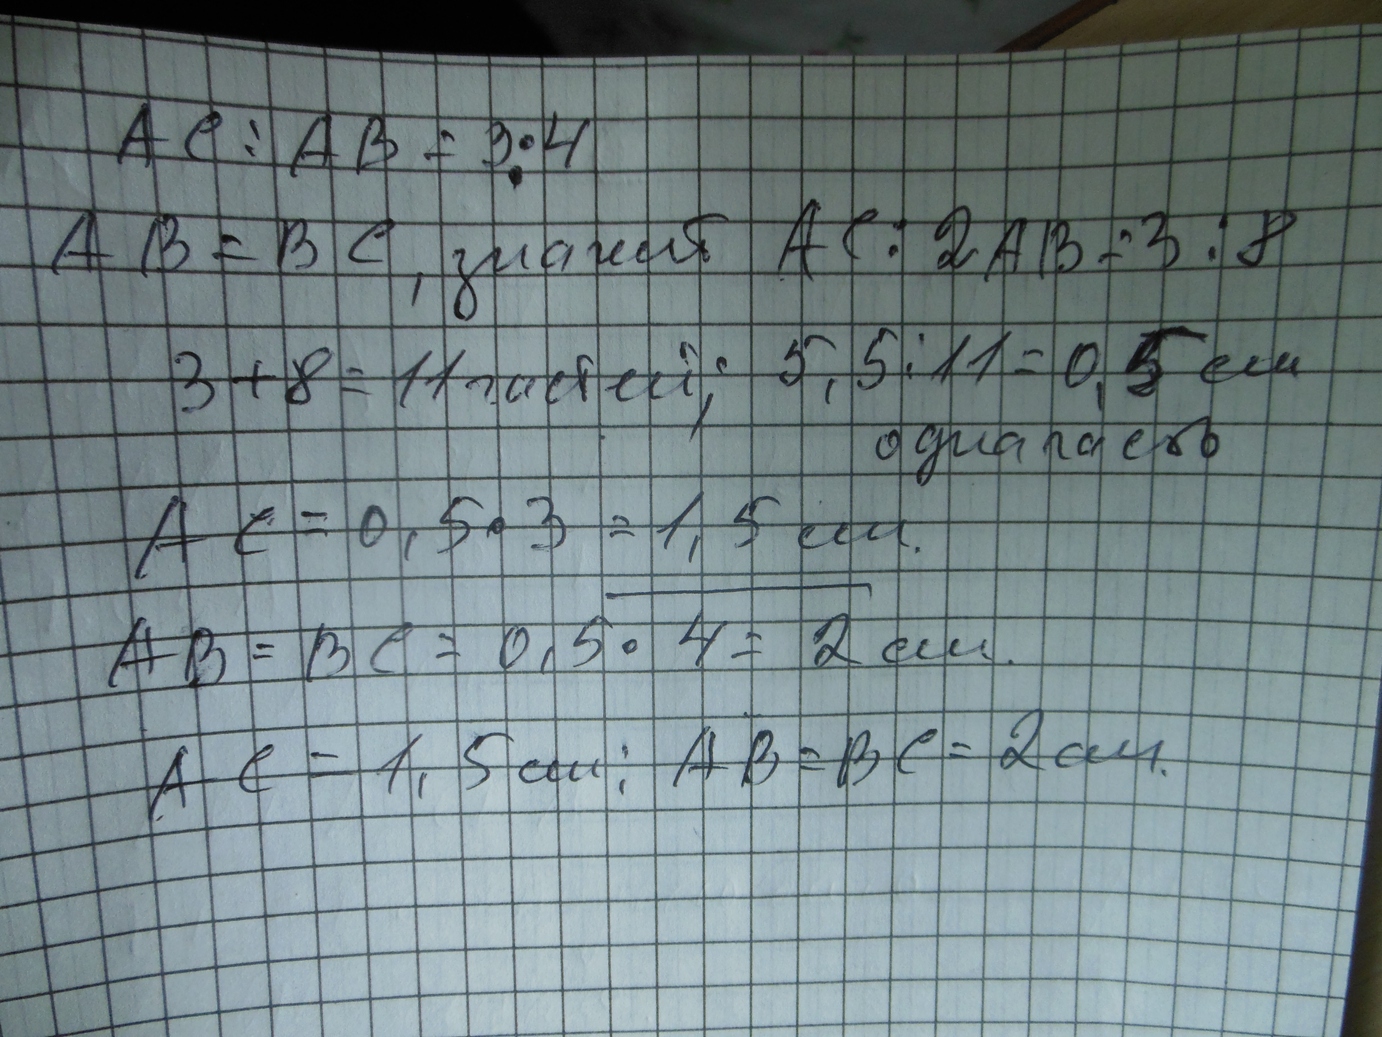 AC : AB = 3 : 4
AB = BC, значит AC : 2AB = 3 : 8
3 + 8 = 11 частей; 5,5 : 11 = 0,5 см
одна часть
AC = 0,5 • 3 = 1,5 см.
AB = BC = 0,5 • 4 = 2 см.
AC = 1,5 см; AB = BC = 2 см.